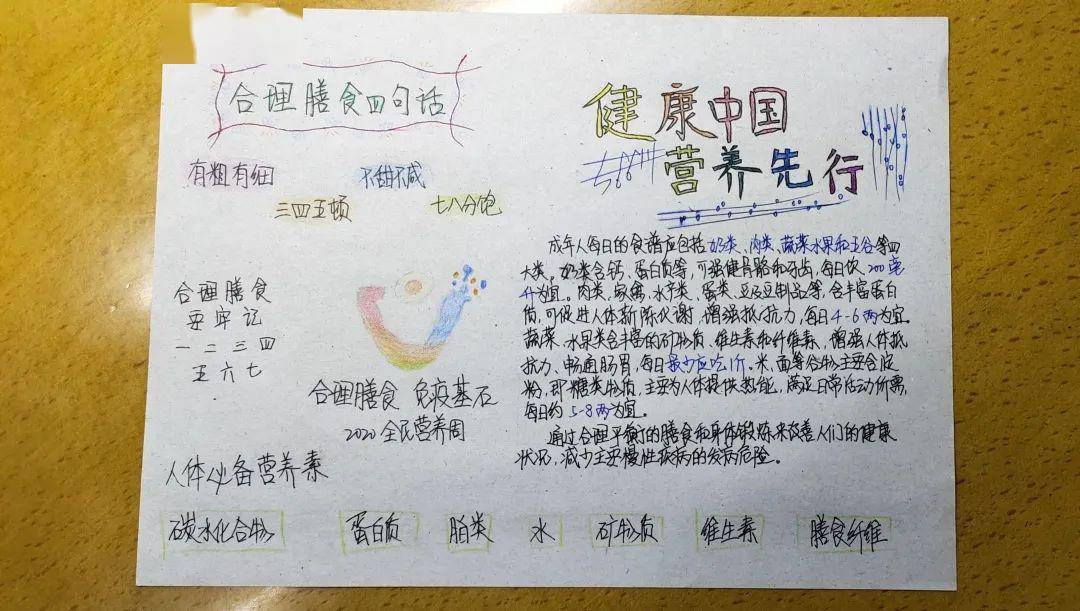 合理膳食四句话
有粗有细
不甜不咸
三四五顿
七八分饱
合理膳食
要牢记
一二三四
五六七
合理膳食 免疫基石
2020全民营养周
健康中国
营养先行
成年人每日的食谱应包括奶类、肉类、蔬菜水果和五谷等四
大类。奶类含钙、蛋白质等,可强健骨骼和牙齿,每日饮200毫
升为宜。肉类,家禽、水产类、蛋类、豆及豆制品等,含丰富蛋白
质,可促进人体新陈代谢,增强抵抗力,每日4-6两为宜。
蔬菜、水果类含丰富的矿物质、维生素和纤维素,增强人体抵
抗力、畅通肠胃,每日最少应吃1斤。米、面等谷物主要含淀
粉,即糖类物质,主要为人体提供热能,满足日常活动所需,
每日约5-8两为宜。
通过合理平衡的膳食和身体锻炼来改善人们的健康
状况,减少主要慢性疾病的发病危险。
人体必备营养素
碳水化合物 蛋白质 脂类 水 矿物质 维生素 膳食纤维